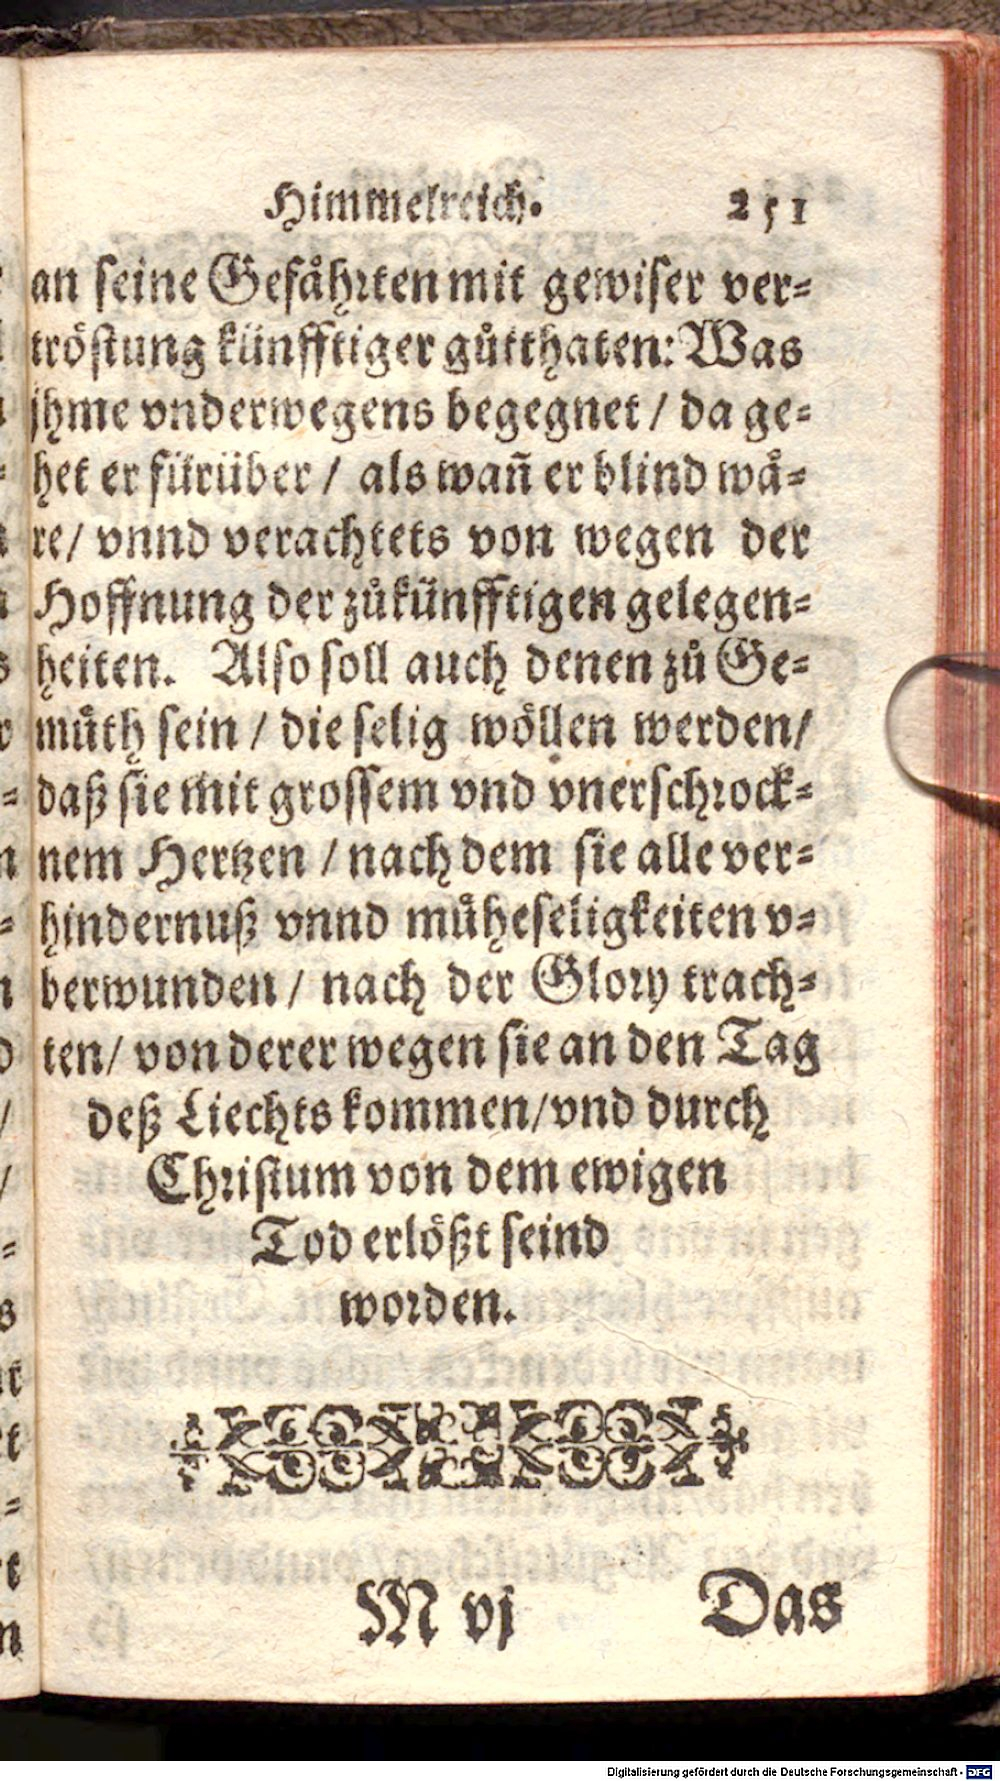 Himmelreich. 251
an seine Gefåhrten mit gewiser ver-
tröstung künfftiger gůtthaten: Was
jhme vnderwegens begegnet / da ge-
het er fürüber / als wañ er blind wå-
re / vnnd verachtets von wegen der
Hoffnung der zůkünfftigen gelegen-
heiten. Also soll auch denen zů Ge-
můth sein / die selig wöllen werden /
daß sie mit grossem vnd vnerschrock-
nem Hertzen / nach dem sie alle ver-
hindernuß vnnd můheseligkeiten v-
berwunden / nach der Glory trach-
ten / von derer wegen sie an den Tag
deß Liechts kommen / vnd durch
Christum von dem ewigen
Tod erlößt seind
worden.
M vj Das
Digitalisierung gefördert durch die Deutsche Forschungsgemeinschaft - DFG